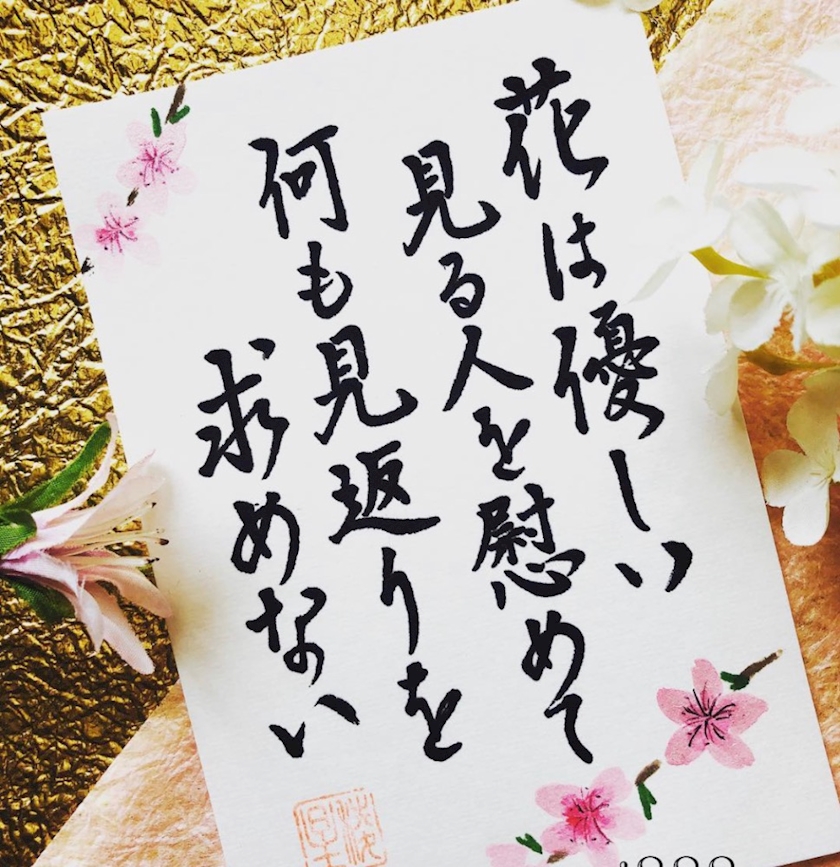 花は優しい
見る人を慰めて
何も見返りを
求めない